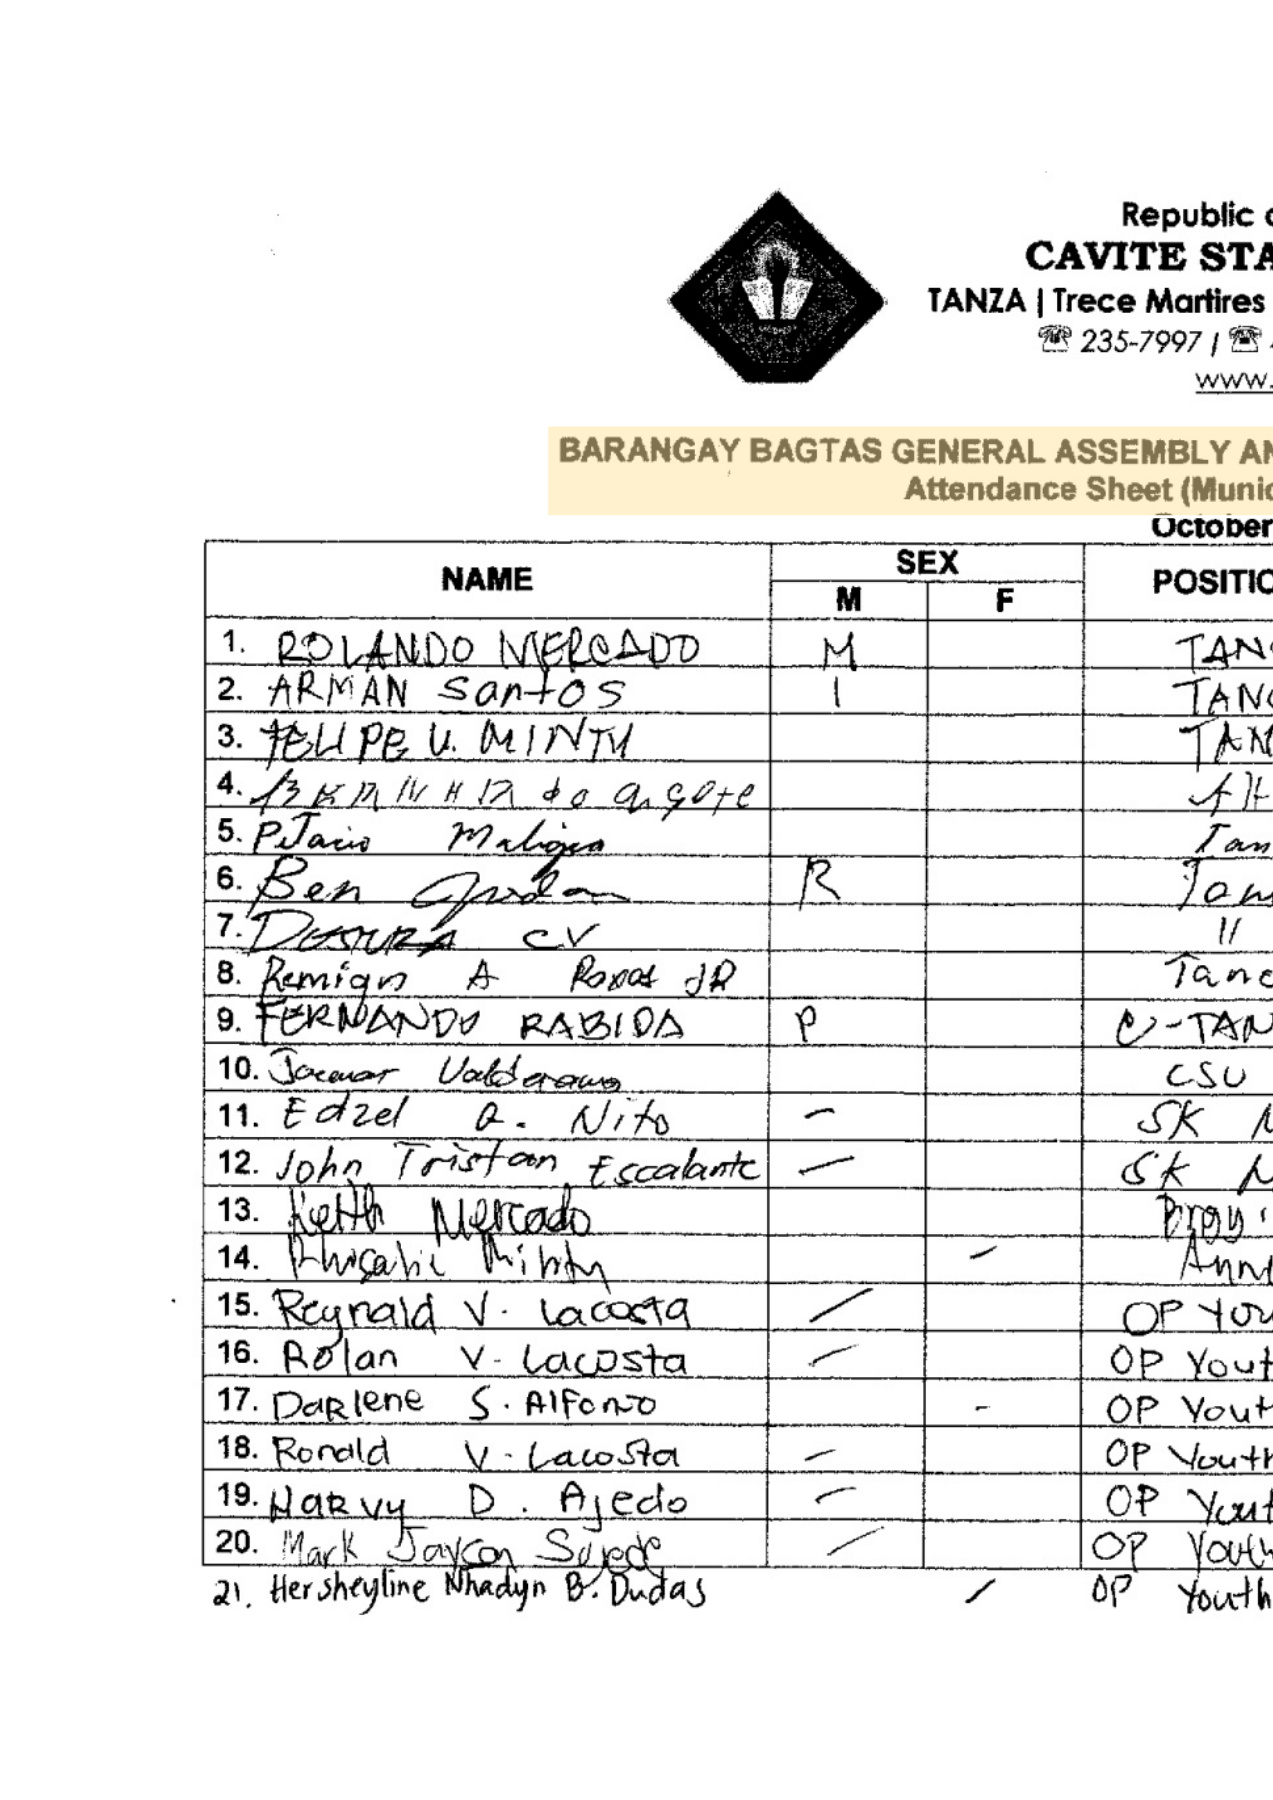 Republic
CAVITE STA
TANZA | Trece Martires
☎ 235-7997 / ☎
www.
BARANGAY BAGTAS GENERAL ASSEMBLY AN
Attendance Sheet (Munic
October
NAME SEX POSITIO
M F
1. ROLANDO MERCADO M TAN
2. ARMAN Santos I TAN
3. FELIPE V. MINTU TAN
4.
5. Tan
6. Ben R Tan
7. CV 11
8. Remigio A Roxas JR Tano
9. FERNANDO RABIDA P C-TAN
10. CSU
11. Edzel A. Nito – SK
12. John Tristan Escalante – SK
13. Keith Mercado Brgy
14. – Ann
15. Reynald V. Lacosta / OP You
16. Rolan V. Lacosta / OP Yout
17. Darlene S. Alfonso - OP Yout
18. Ronald V. Lacosta – OP Youth
19. Harvy D. Ajedo – OP Yout
20. Mark Jaycon / OP Youth
21. Hersheyline Nhadyn B. Dudas / OP Youth